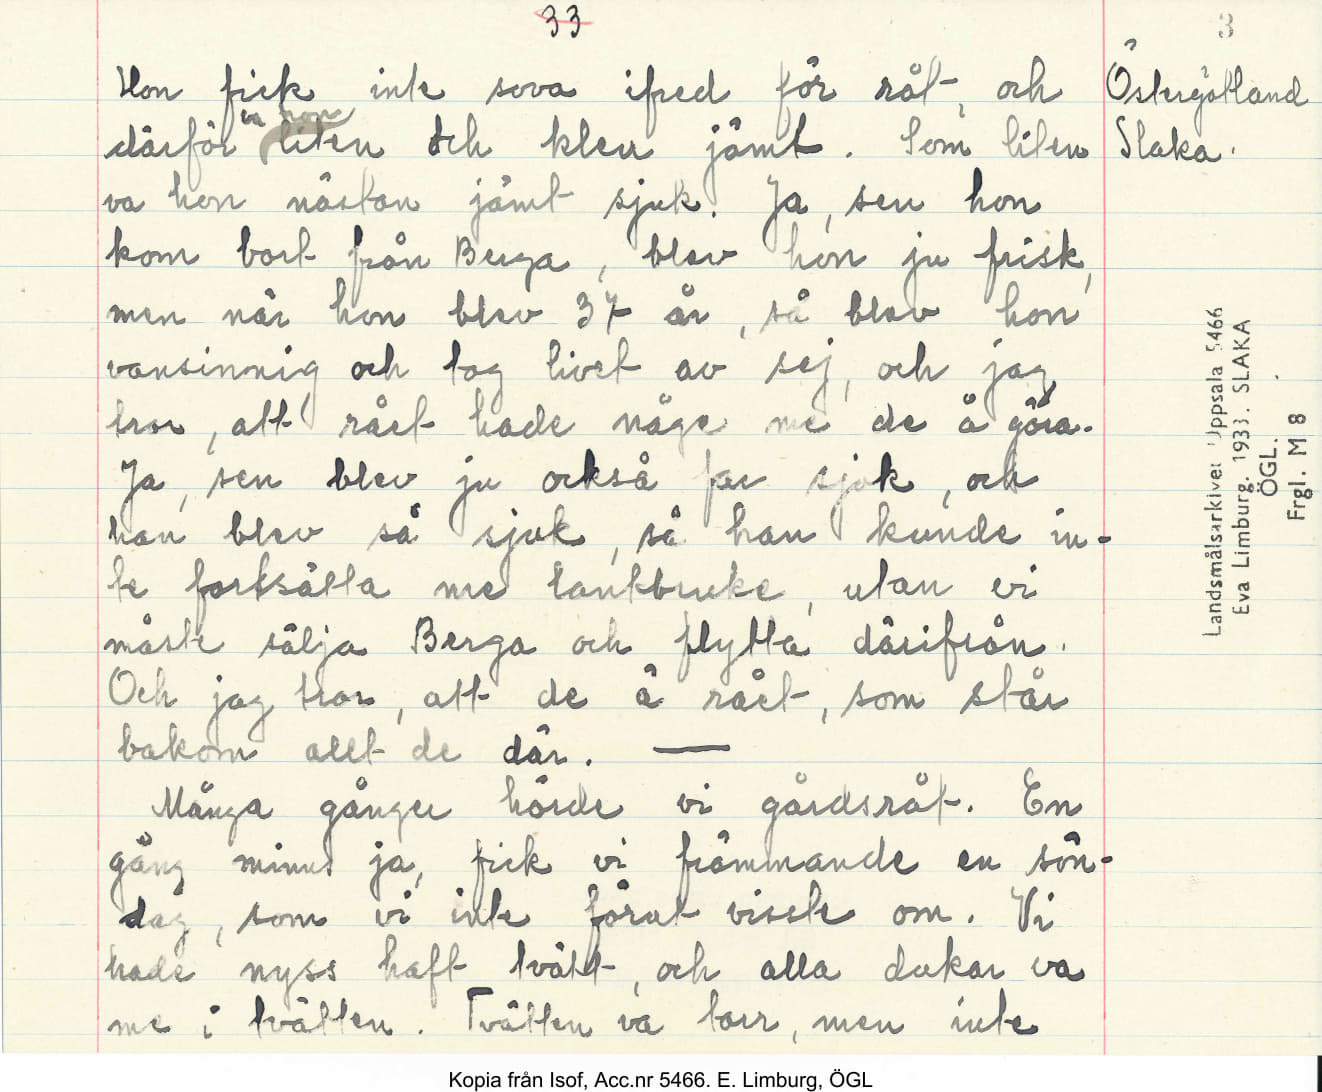 33
3
Hon fick inte sova ifred för råt, och
va hon
därför liten och klen jämt. Som liten
va hon nästan jämt sjuk. Ja, sen hon
kom bort från Berga, blev hon ju frisk,
men när hon blev 37 år, så blev hon
vansinnig och tog livet av sej, och jag
tror, att rået hade någe me de å göra.
Ja, sen blev ju också far sjuk, och
han blev så sjuk, så han kunde in-
te fortsätta me lantbruke, utan vi
måste sälja Berga och flytta därifrån.
Och jag tror, att de ä rået, som står
bakom allt de där. —
Många gånger hörde vi gårdsråt. En
gång minns ja, fick vi främmande en sön-
dag, som vi inte förut visste om. Vi
hade nyss haft tvätt, och alla dukar va
me i tvätten. Tvätten va torr, men inte
Östergötland
Slaka.
Landsmålsarkivet Uppsala 5466
Eva Limburg. 1933. SLAKA
ÖGL.
Frgl. M 8
Kopia från Isof, Acc.nr 5466. E. Limburg, ÖGL